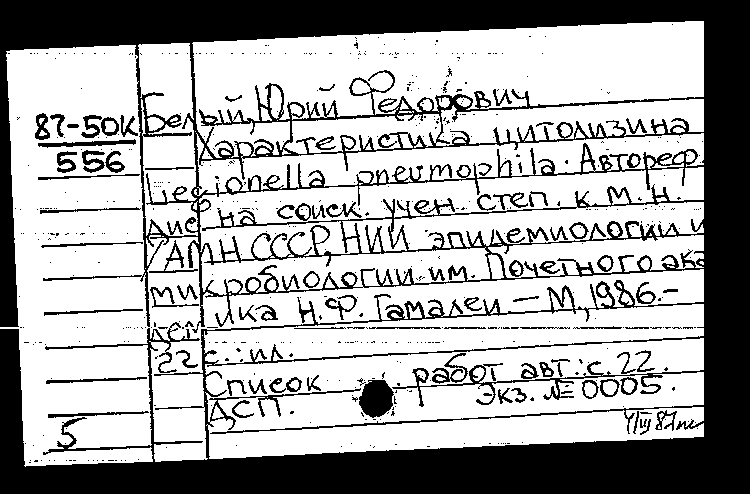 Белый, Юрий Федорович
87-50К
556
Характеристика цитолизина
Legionella pneumophila. Автореф.
дис на соиск. учен. степ. к. м. н.
/АМН СССР, НИИ эпидемиологии и
микробиологии им. Почетного ака
демика Н.Ф. Гамалеи — М., 1986.-
22 с.: ил.
Список работ авт.: с. 22.
ДСП. Экз. № 0005.
5